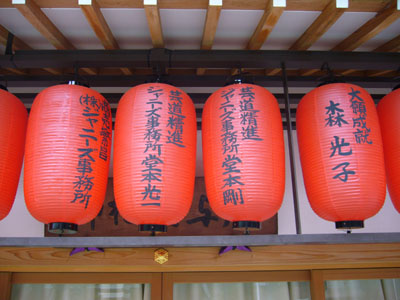 (株)ジャニーズ事務所
芸道精進
ジャニーズ事務所
堂本光一
芸道精進
ジャニーズ事務所
堂本剛
大願成就
森光子